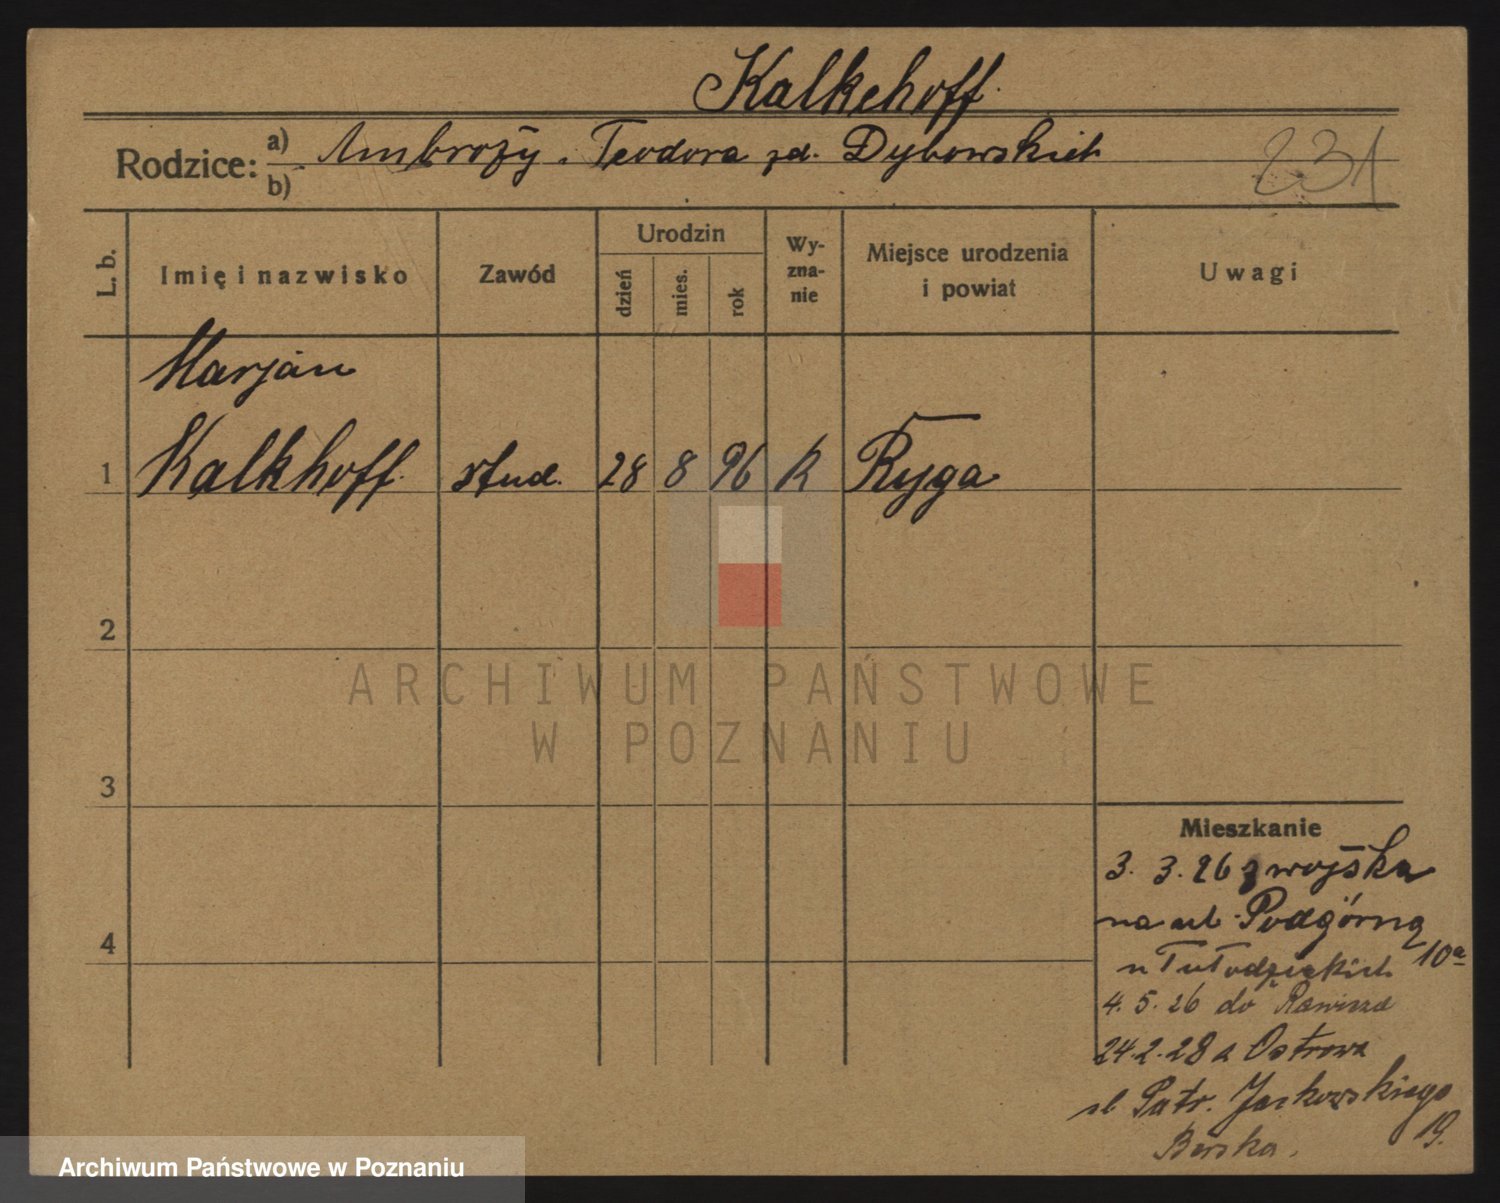 Kalkehoff.
Rodzice: a) Ambroży. Teodora zd. Dybowskich
b)
231
L. b.
Imię i nazwisko
Zawód
Urodzin
dzień
mies.
rok
Wy-
zna-
nie
Miejsce urodzenia
i powiat
Uwagi
Marjan
1 Kalkhoff. stud. 28 8 96 R Ryga
2
ARCHIWUM PAŃSTWOWE
W POZNANIU
3
Mieszkanie
3. 3. 26 z wojska
na ul. Podgórną
10a
4
4. 5. 26 do Rawicza
24.2.28 z Ostrowa
ul Patr. Jackowskiego
19.
Archiwum Państwowe w Poznaniu